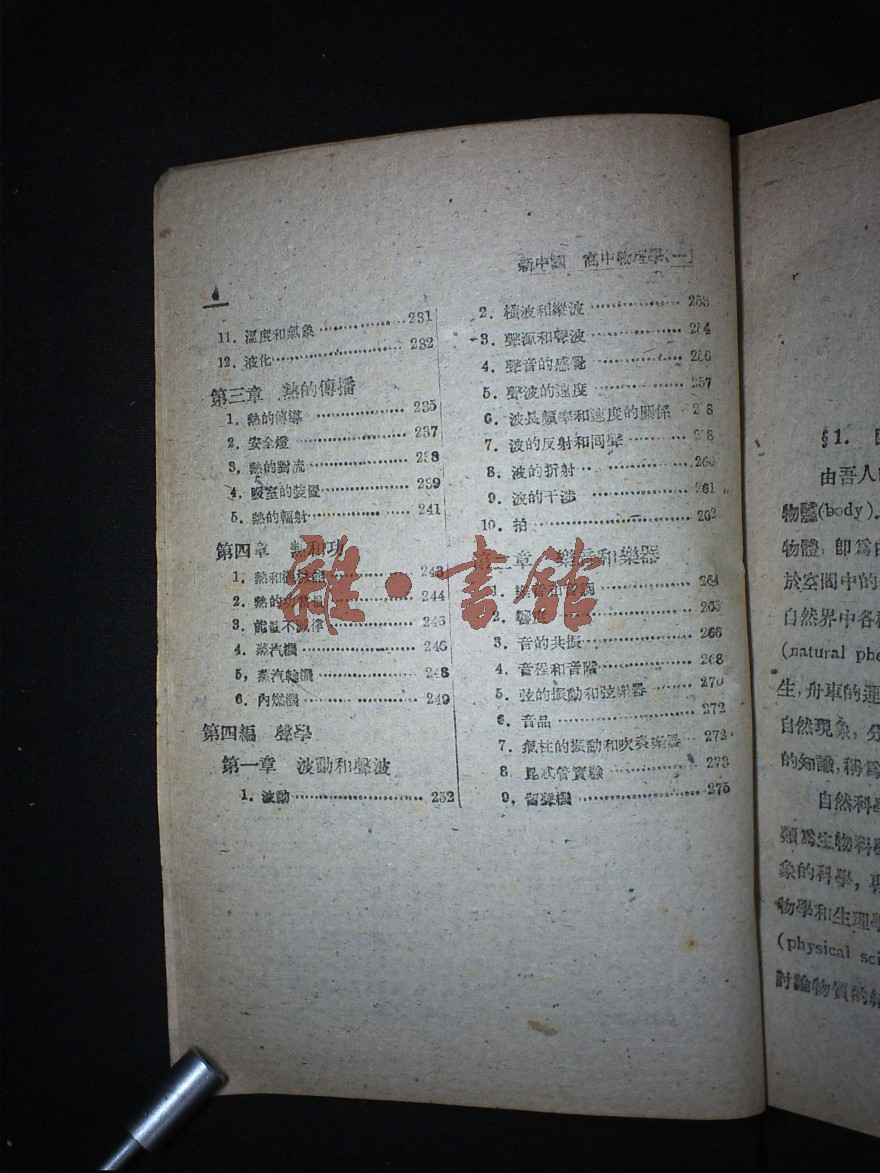 新中國 高中物理學(一)
4
11. 溫度和氣象 231
12. 液化 232
第三章 熱的傳播
1. 熱的傳導 235
2. 安全燈 237
3. 熱的對流 238
4. 暖室的裝置 239
5. 熱的輻射 241
第四章 熱和功
1. 熱和 243
2. 熱的功當量 244
3. 能量不滅律 246
4. 蒸汽機 246
5. 蒸汽輪機 248
6. 內燃機 249
第四編 聲學
第一章 波動和聲波
1. 波動 252
2. 橫波和縱波 253
3. 聲源和聲波 254
4. 聲音的感覺 256
5. 聲波的速度 257
6. 波長頻率和速度的關係
7. 波的反射和回聲
8. 波的折射 260
9. 波的干涉 261
10. 拍 262
第二章 樂音和樂器
1. 264
2. 265
3. 音的共振 268
4. 音程和音階 268
5. 弦的振動和弦樂器 270
6. 音品 272
7. 氣柱的振動和吹奏樂器 272
8. 昆忒管實驗 273
9. 留聲機 275
雜·書館
§1.
由吾人
物體(body).
物體, 即爲由
於空間中的
自然界中各種
(natural phe
生, 舟車的運
自然現象, 分
的知識, 稱爲
自然科學
類爲生物科學
象的科學, 專
物學和生理學
(physical sci
討論物質的結